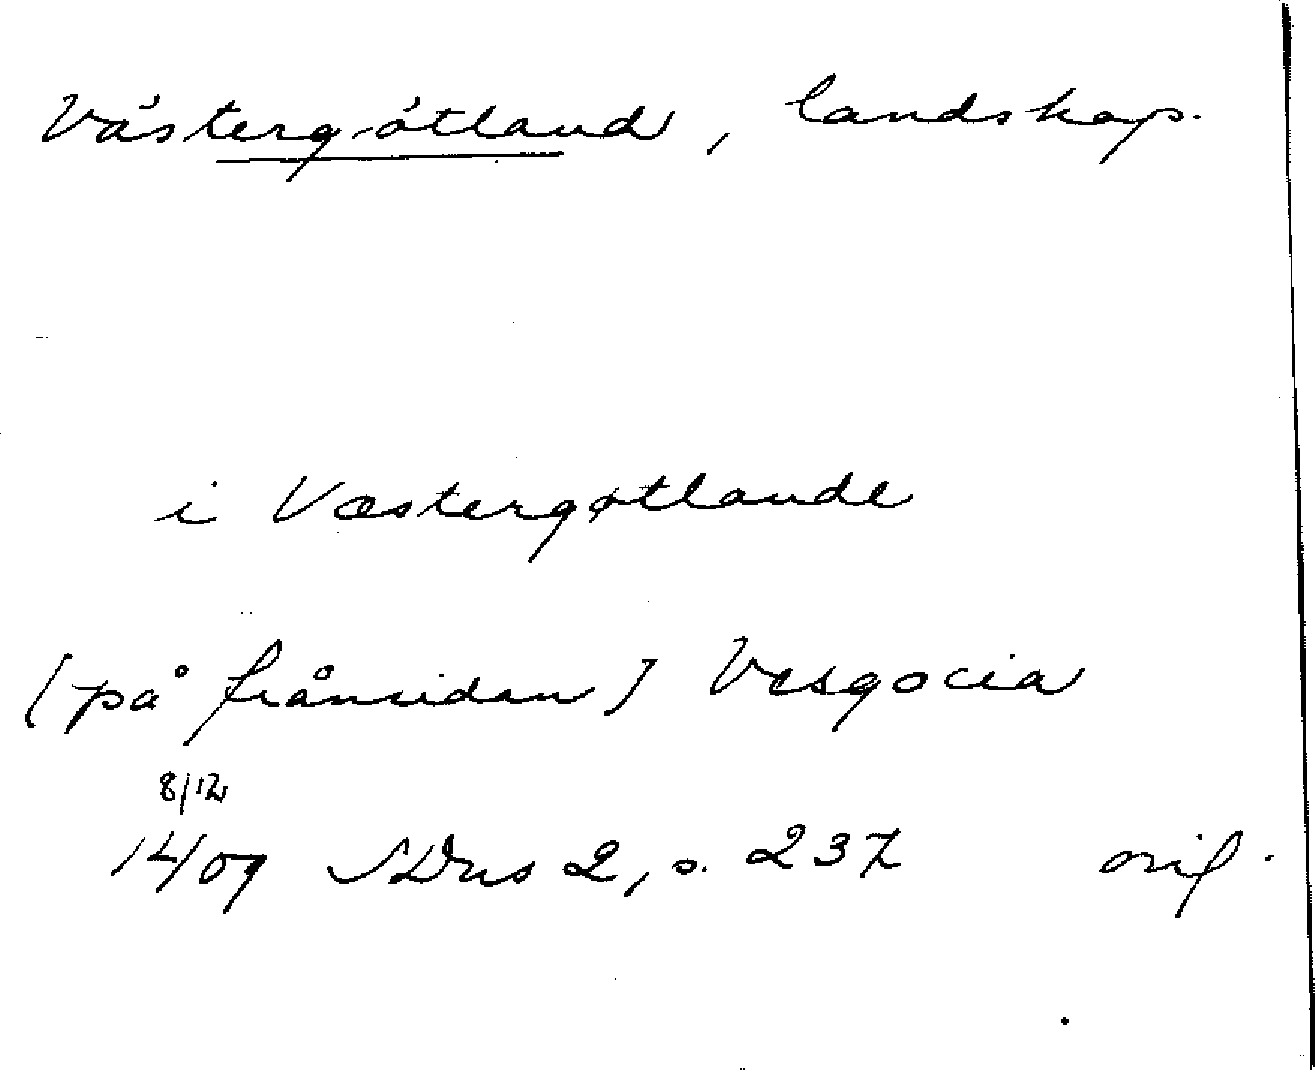 Västergötland, landskap.
i Væstergøtlande
[på frånsidan] Vesgocia
8/12
14/09 SDns 2, s. 237 orig.